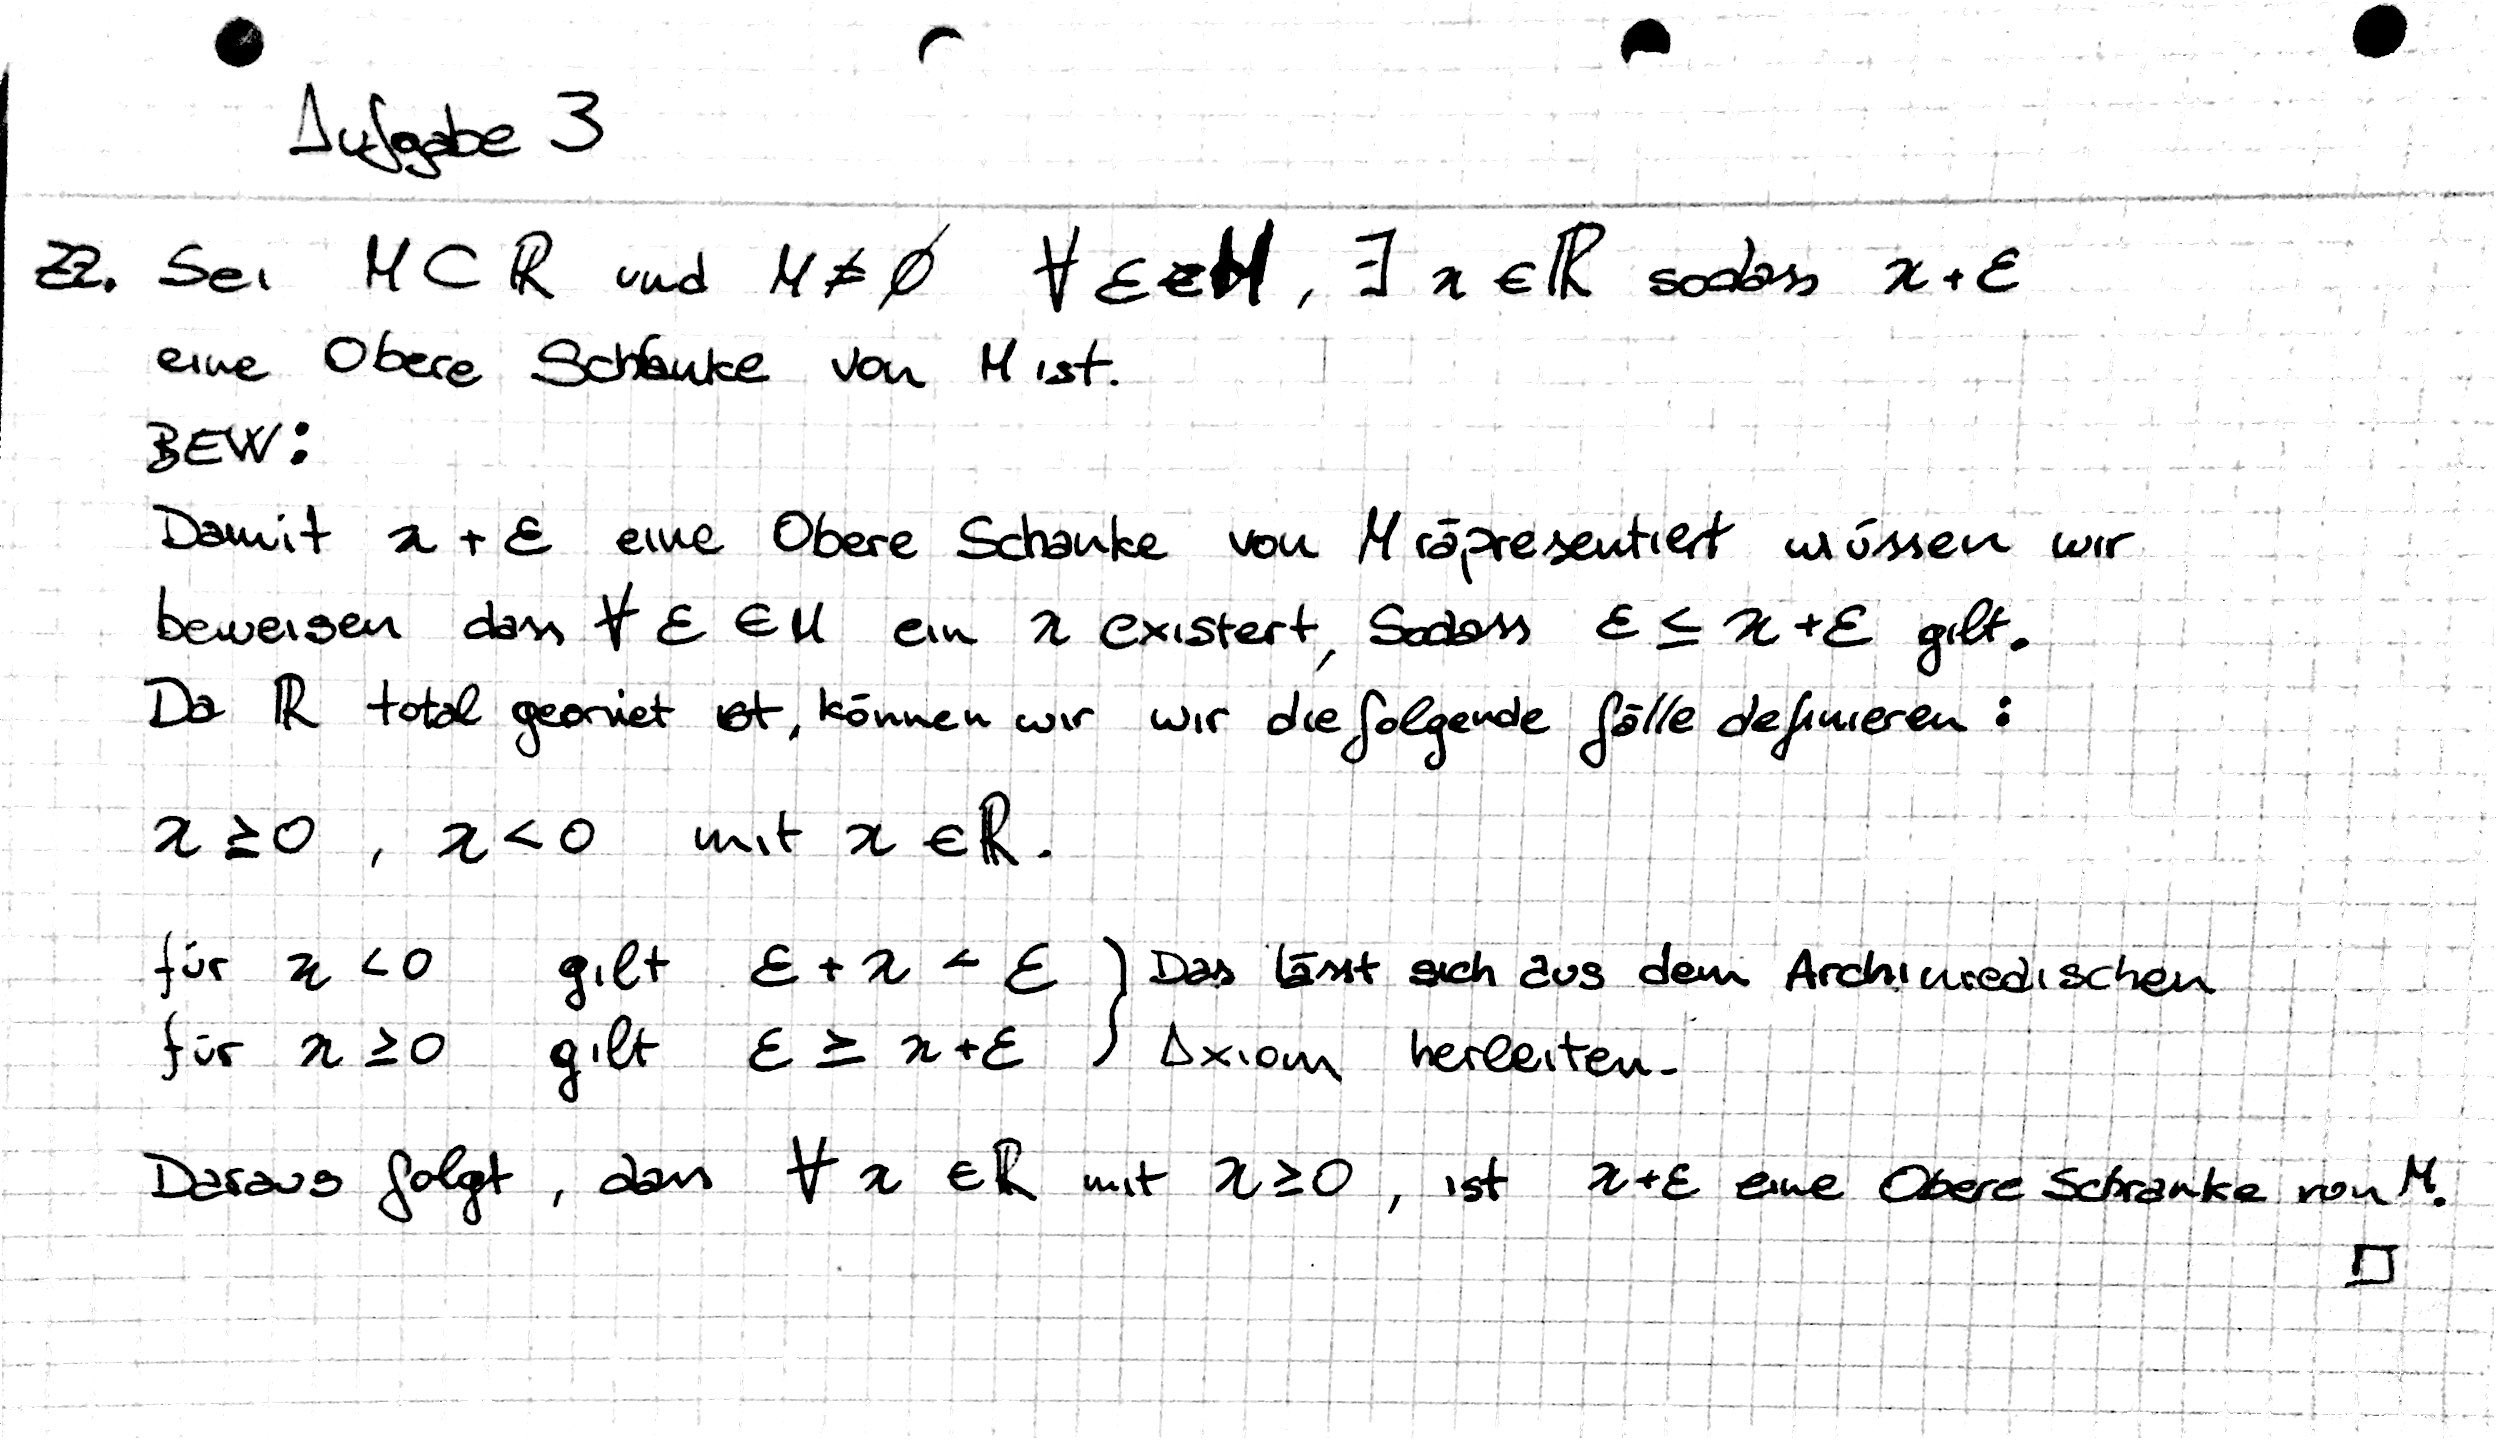 Aufgabe 3
ZZ. Sei M ⊂ ℝ und M ≠ ∅ ∀ ε ∈ M, ∃ x ∈ ℝ sodass x + ε
eine Obere Schranke von M ist.
BEW:
Damit x + ε eine Obere Schanke von M räpresentiert müssen wir
beweisen dass ∀ ε ∈ M ein x existert, Sodass ε ≤ x + ε gilt.
Da ℝ total georniet ist, können wir wir die folgende fälle definieren:
x ≥ 0 , x < 0 mit x ∈ ℝ.
für x < 0 gilt ε + x < ε } Das lässt sich aus dem Archimedischen
für x ≥ 0 gilt ε ≥ x + ε } Axiom herleiten.
Daraus folgt, dass ∀ x ∈ ℝ mit x ≥ 0, ist x + ε eine Obere Schranke von M.
□